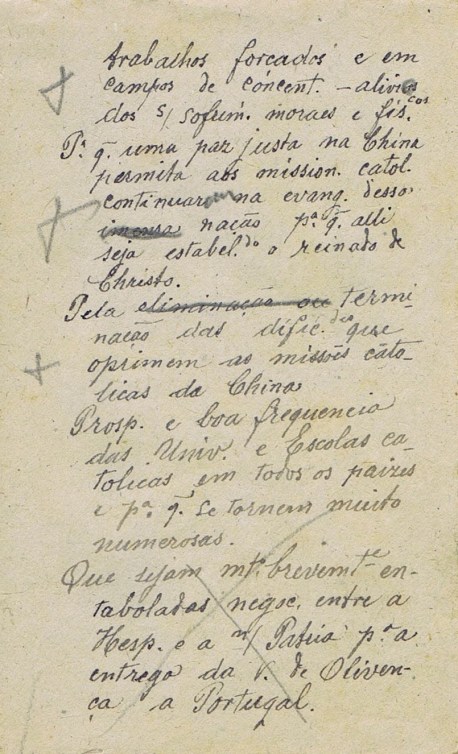 trabalhos forcados e em
campos de concent. – alivios
dos s/ sofrim. moraes e fisicos
Pª q̃. uma paz justa na China
permita aos mission. catol.
continuarem na evang. dessa
imensa nação pª. q̃. alli
seja estabel.do o reinado de
Christo.
Pela eliminação ou termi-
nação das dific.des que
oprimem as missões cato-
licas da China
Prosp. e boa frequencia
das Univ. e Escolas ca-
tolicas em todos os paizes
e pª. q̃. se tornem muito
numerosas.
Que sejam mto. brevemte en-
taboladas negoc. entre a
Hesp. e a m/ Patria pª a
entrega da V. de Oliven-
ça a Portugal.